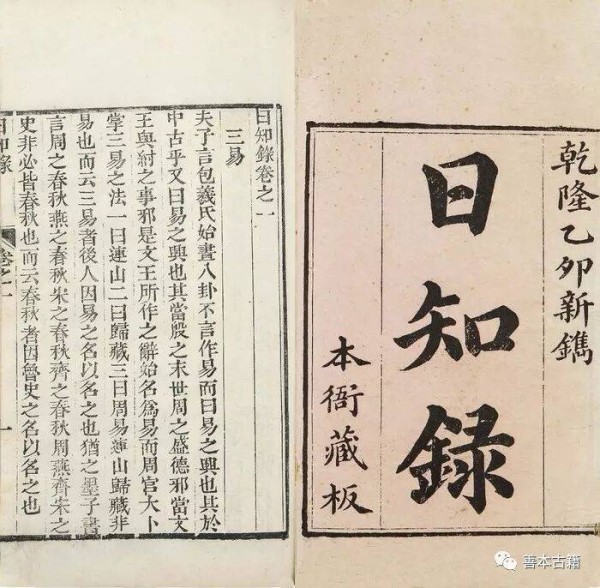 乾隆乙卯新鐫
日知録
本衙藏板
日知錄卷之一
三易
夫子言包羲氏始畫八卦不言作易而曰易之興也其於
中古乎又曰易之興也其當殷之末世周之盛德邪當文
王與紂之事邪是文王所作之辭始名爲易而周官大卜
掌三易之法一曰連山二曰歸藏三曰周易連山歸藏非
易也而云三易者後人因易之名以名之也猶之墨子書
言周之春秋燕之春秋宋之春秋齊之春秋周燕齊宋之
史非必皆春秋也而云春秋者因魯史之名以名之也
日知錄 卷之一 一
善本古籍